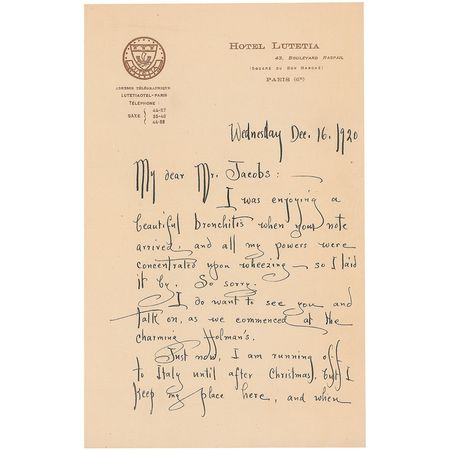 HOTEL LUTETIA
43, BOULEVARD RASPAIL
(SQUARE DU BON MARCHÉ)
PARIS (6e)
ADRESSE TÉLÉGRAPHIQUE
LUTETIAOTEL-PARIS
TÉLÉPHONE
SAXE
Wednesday Dec. 16. 1920
My dear Mr. Jacobs:
I was enjoying a
beautiful bronchitis when your note
arrived, and all my powers were
concentrated upon wheezing – so I laid
it by. So sorry.
I do want to see you and
talk on, as we commenced at the
charming Holman's.
Just now, I am running off
to Italy until after Christmas, but I
keep my place here, and when